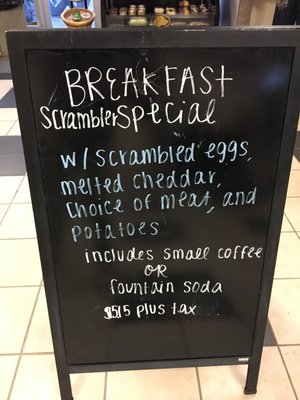 BREAKFAST
scramblerSpecial
w/ scrambled eggs,
melted cheddar,
choice of meat, and
potatoes
includes small coffee
OR
fountain soda
$5.15 plus tax